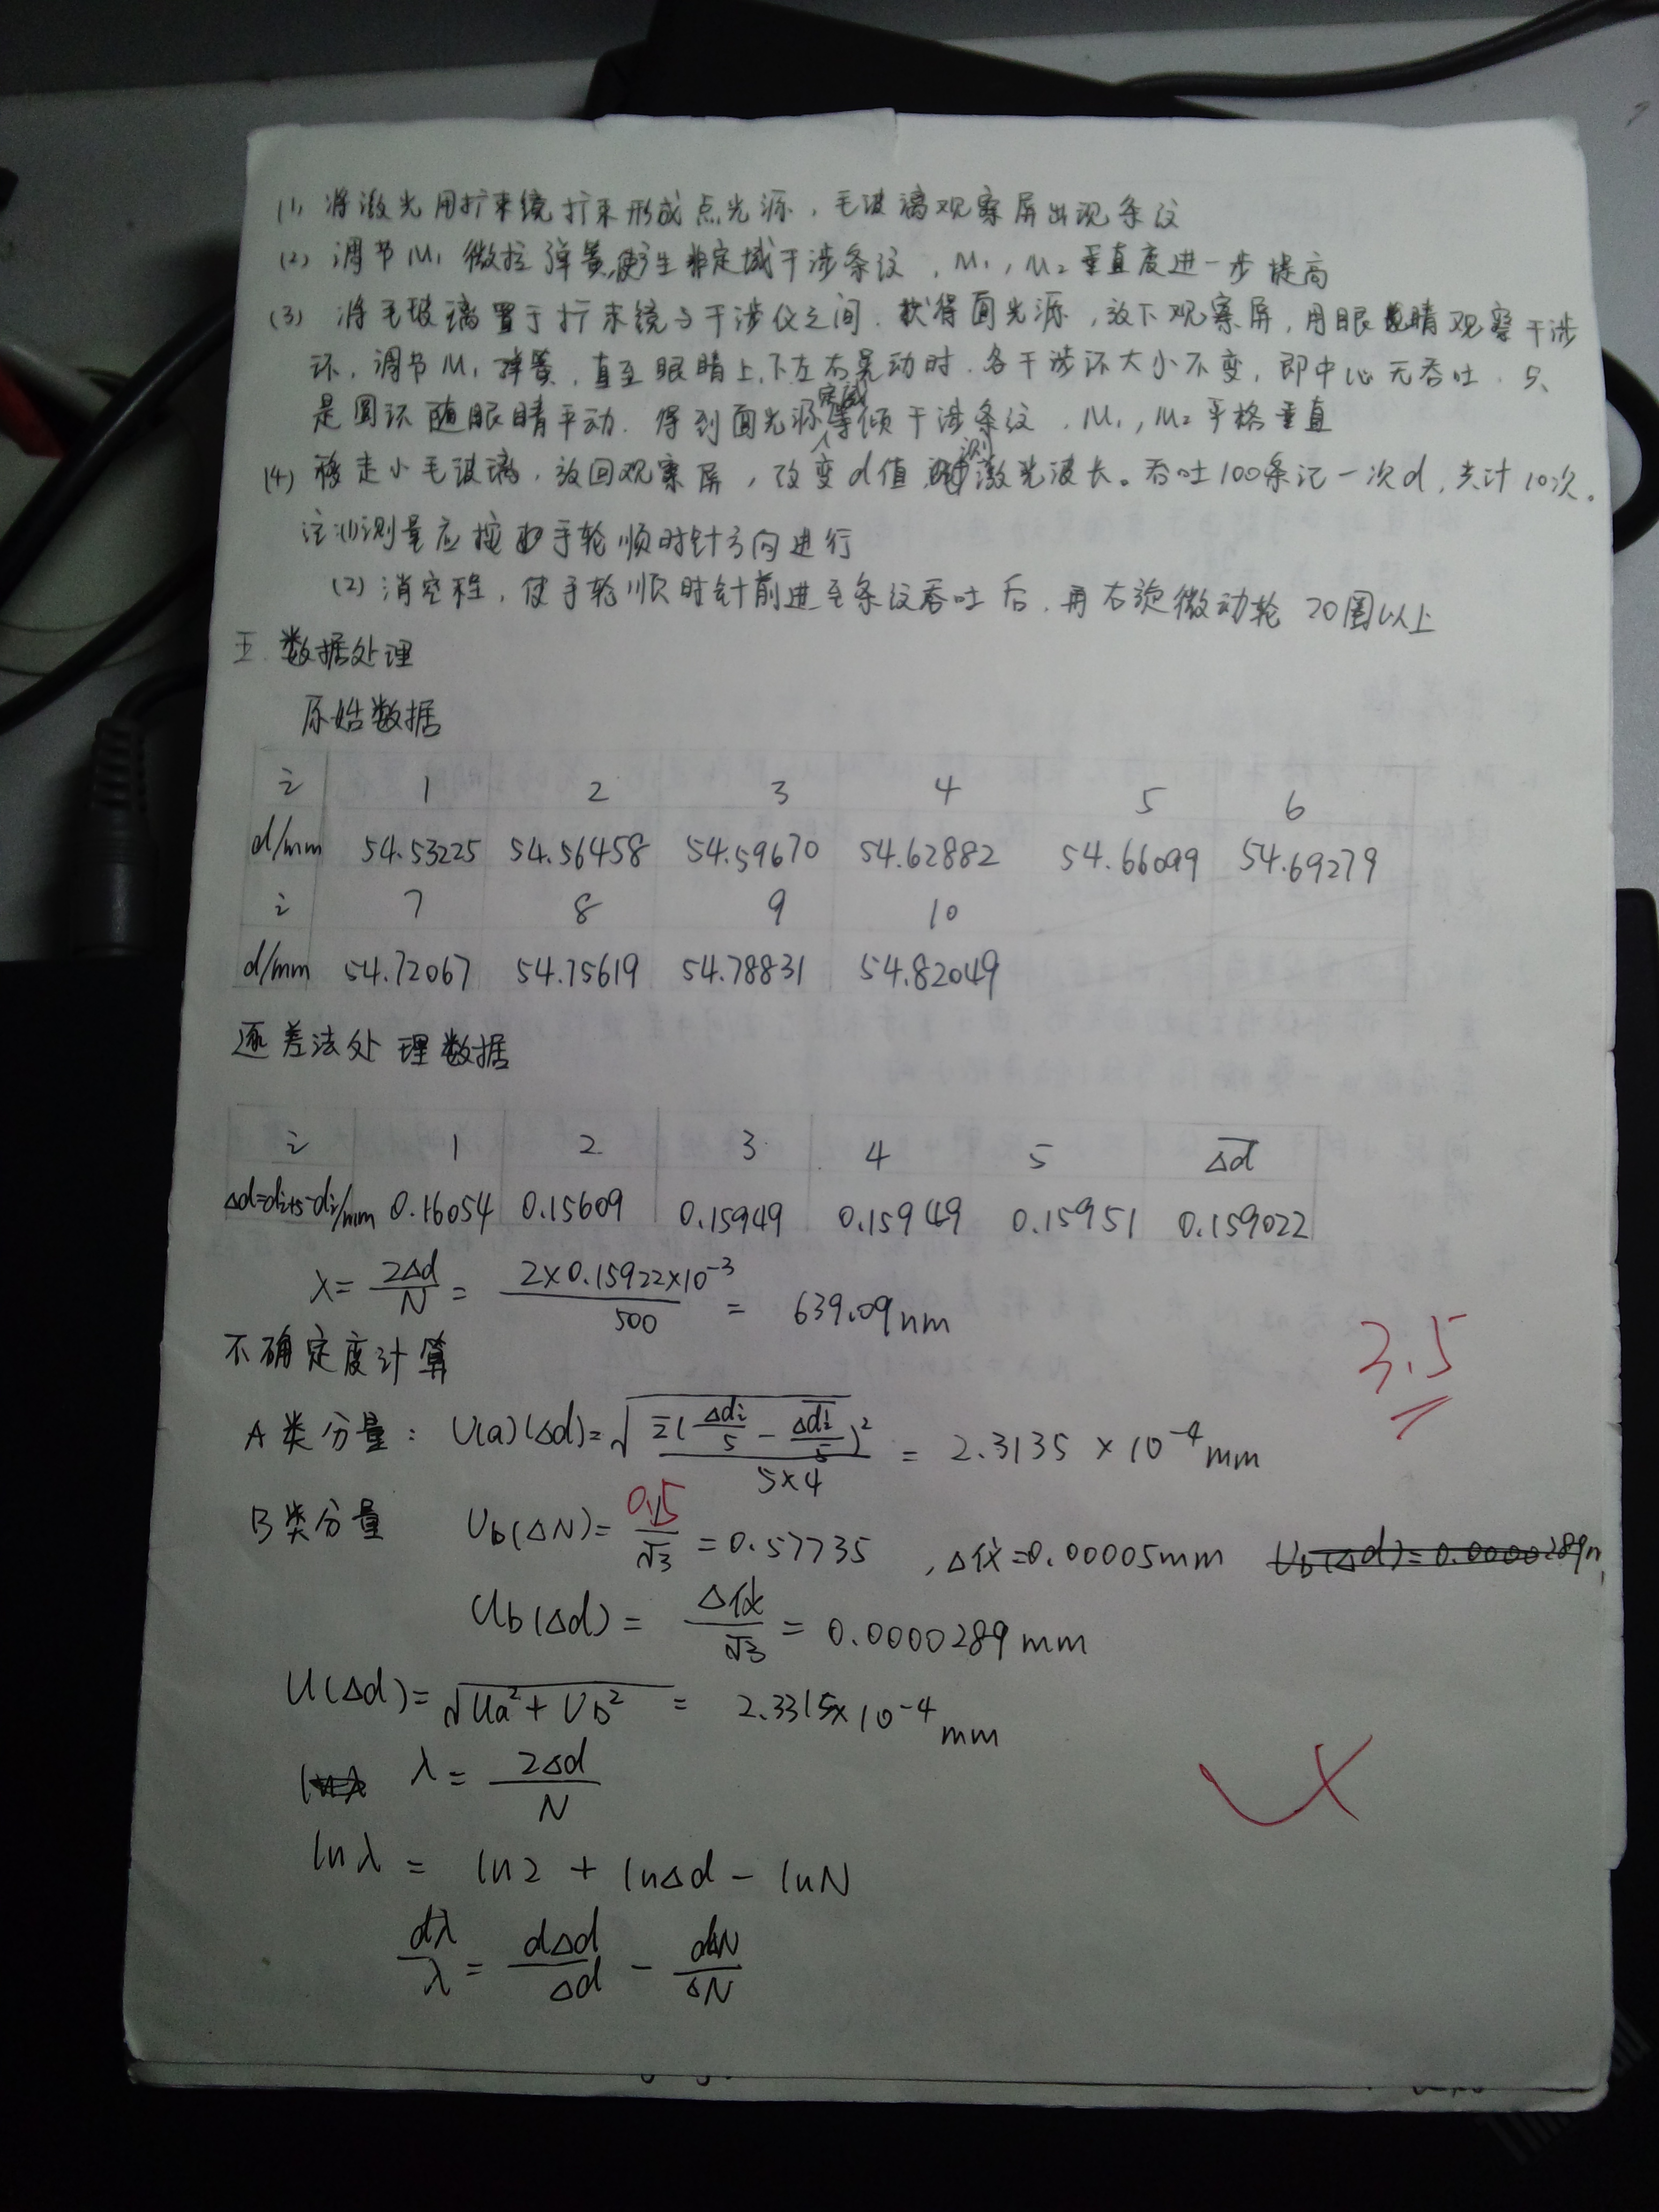 (1) 将激光用扩束镜扩束形成点光源，毛玻璃观察屏出现条纹
(2) 调节M₁微拉弹簧,使产生非定域干涉条纹，M₁，M₂垂直度进一步提高
(3) 将毛玻璃置于扩束镜与干涉仪之间.获得面光源，放下观察屏，用眼睛观察干涉
环，调节M₁弹簧，直至眼睛上.下左右晃动时.各干涉环大小不变，即中心无吞吐.只
是圆环随眼睛平动.得到面光源定域等倾干涉条纹，M₁，M₂平格垂直
(4) 移走小毛玻璃，放回观察屏，改变d值测激光波长。吞吐100条记一次d，共计10次。
注(1)测量应按手轮顺时针方向进行
(2) 消空程，使手轮顺时针前进至条纹吞吐后.再右旋微动轮20圈以上
五.数据处理
原始数据
i 1 2 3 4 5 6
d/mm 54.53225 54.56458 54.59670 54.62882 54.66099 54.69279
i 7 8 9 10
d/mm 54.72067 54.75619 54.78831 54.82049
逐差法处理数据
i 1 2 3 4 5 Δd̅
Δd=di+5-di/mm 0.16054 0.15609 0.15949 0.15949 0.15951 0.159022
λ= 2Δd/N = 2×0.15922×10⁻³/500 = 639.09nm
不确定度计算
3.5
A类分量： U(a)(Δd)=√(Σ(Δdi/5 - Δd̅i̅/5)²/5×4) = 2.3135 × 10⁻⁴ mm
B类分量 Ub(ΔN)= 0.5/√3 =0.57735 ，Δ仪=0.00005mm Ub(Δd)=0.0000289m
Ub(Δd)= Δ仪/√3 = 0.0000289 mm
U(Δd)=√(Ua²+Ub²) = 2.3315×10⁻⁴ mm
λ= 2Δd/N
lnλ = ln2 + lnΔd - lnN
dλ/λ = dΔd/Δd - dΔN/ΔN